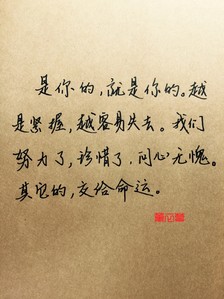 是你的，就是你的。越
是紧握，越容易失去。我们
努力了，珍惜了，问心无愧。
其它的，交给命运。